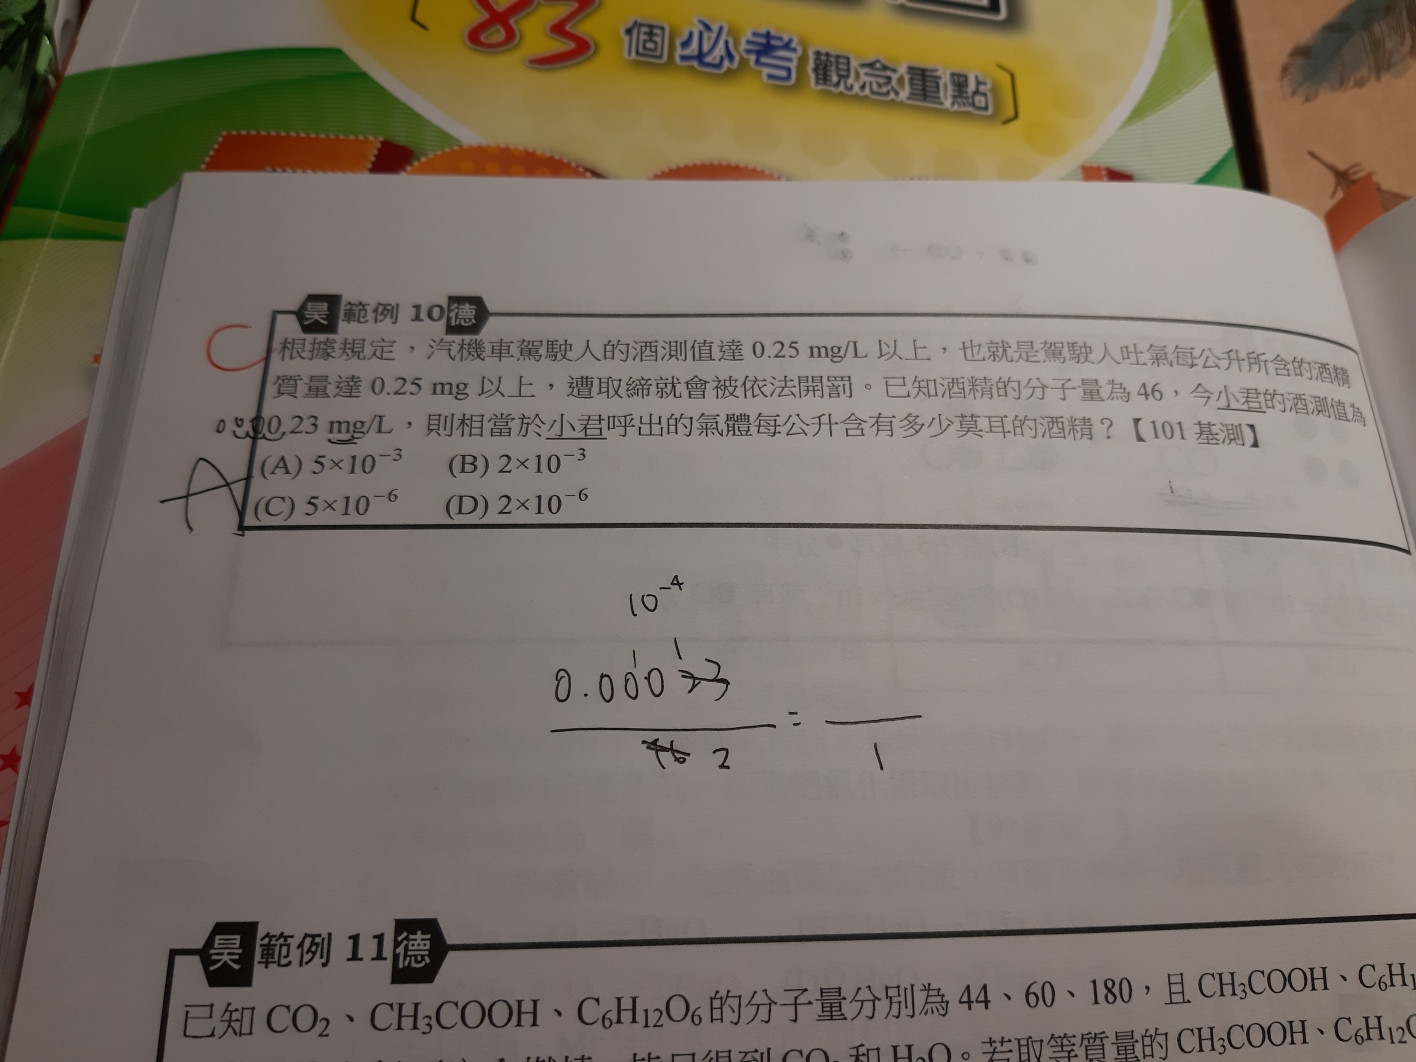 83 個必考觀念重點
昊 範例 10 德
C
根據規定，汽機車駕駛人的酒測值達 0.25 mg/L 以上，也就是駕駛人吐氣每公升所含的酒精
質量達 0.25 mg 以上，遭取締就會被依法開罰。已知酒精的分子量為 46，今小君的酒測值為
0.23 mg/L，則相當於小君呼出的氣體每公升含有多少莫耳的酒精？【101 基測】
A
(A) 5×10⁻³ (B) 2×10⁻³
(C) 5×10⁻⁶ (D) 2×10⁻⁶
10⁻⁴
1 1
0.00023
=
46 2 1
昊 範例 11 德
已知 CO₂、CH₃COOH、C₆H₁₂O₆ 的分子量分別為 44、60、180，且 CH₃COOH、C₆H₁
CO₂ 和 H₂O。若取等質量的 CH₃COOH、C₆H₁₂O